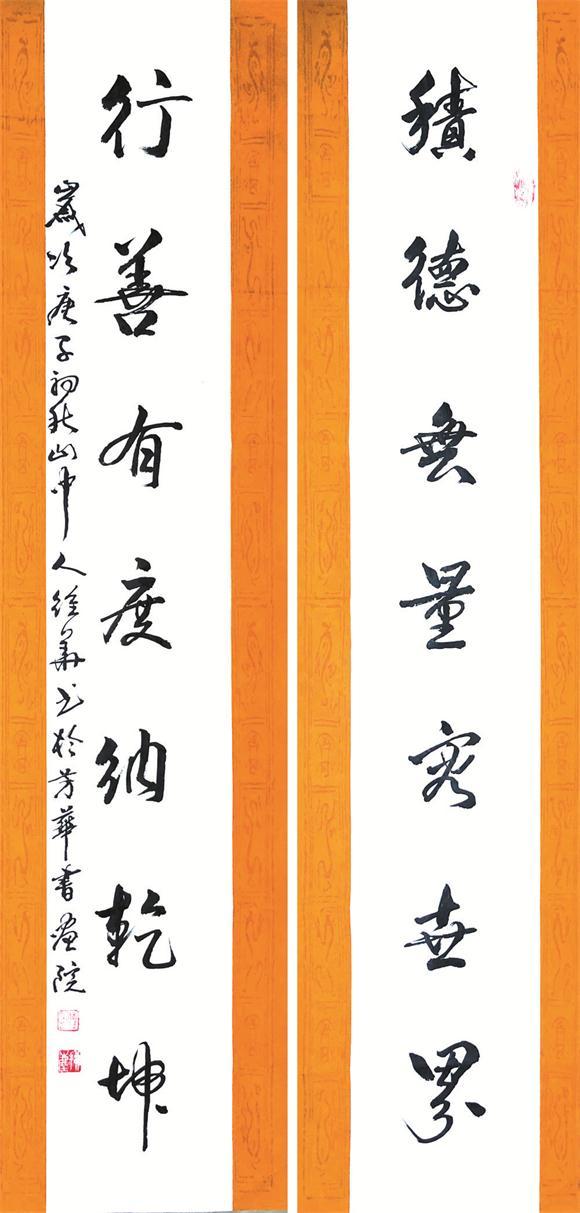 積德無量容世界
行善有度納乾坤
歲次庚子初秋山中人徐華书於芳華書画院